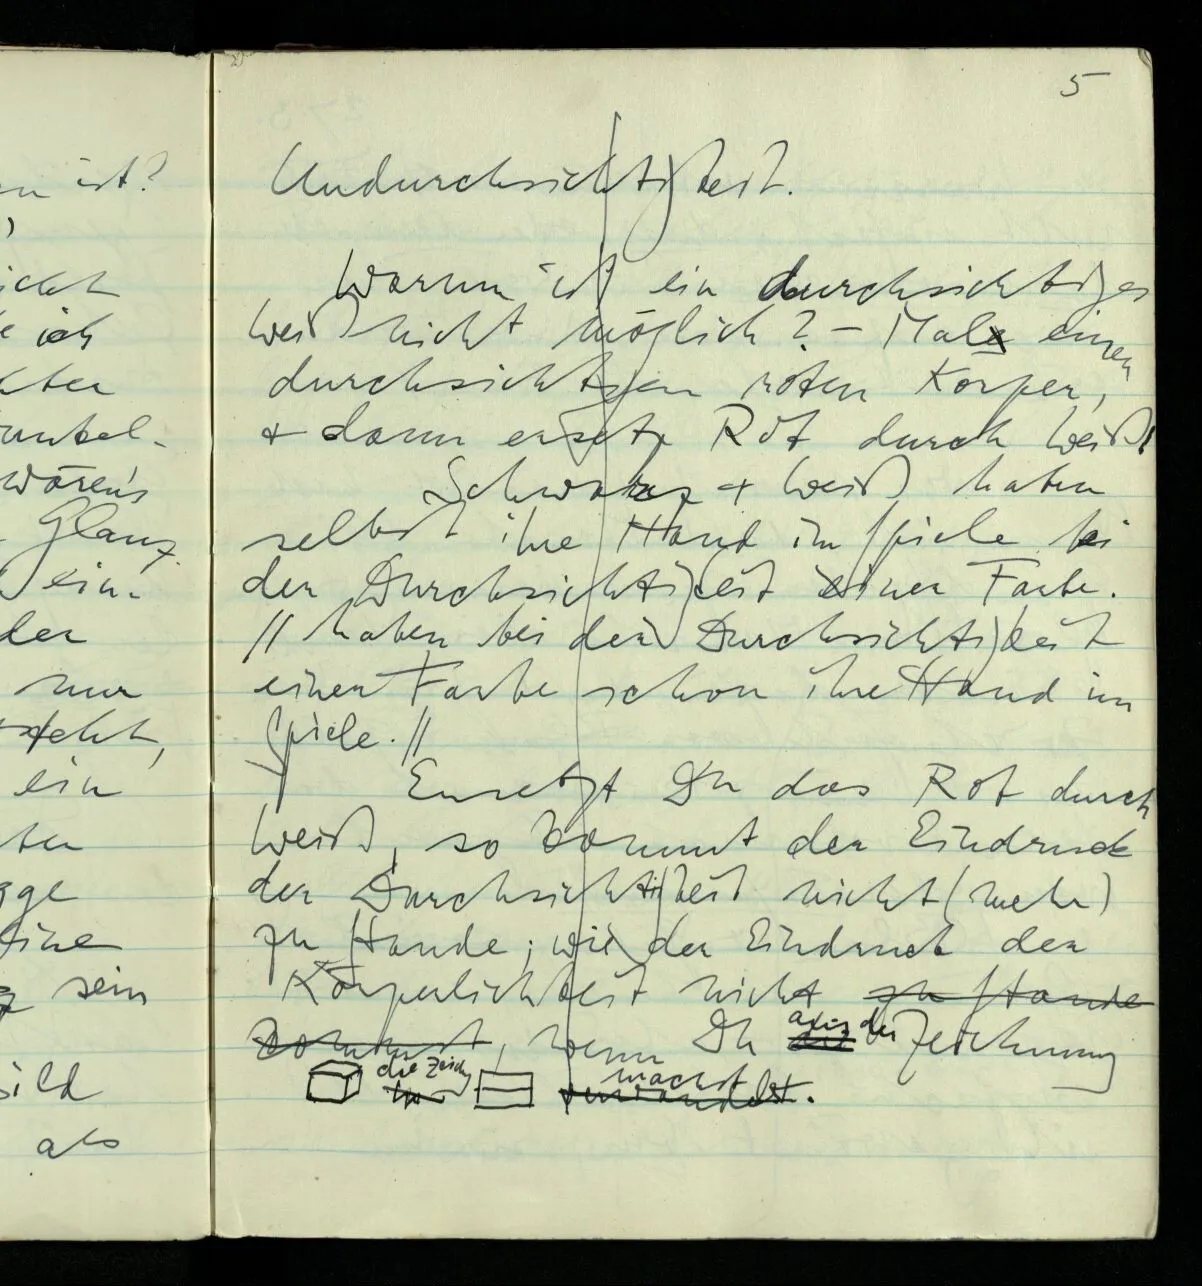 5
n ist?
Undurchsichtigkeit.
Warum ist ein durchsichtiges
Weiß nicht möglich? – Male einen
durchsichtigen roten Körper,
+ dann ersetz Rot durch Weiß!
Schwarz + Weiß haben
selbst ihre Hand im Spiele bei
der Durchsichtigkeit einer Farbe.
// haben bei der Durchsichtigkeit
einer Farbe schon ihre Hand im
Spiele. //
Ersetzt Du das Rot durch
Weiß, so kommt der Eindruck
der Durchsichtigkeit nicht (mehr)
zu Stande; wie der Eindruck der
Körperlichkeit nicht zu Stande
kommt, wenn Du aus der Zeichnung
die Zeichg machst verwandelst.
icht
ich
kter
unkel-
wären's
Glanz.
ein-
der
nur
steht,
ein
ter
eine
sein
ild
als